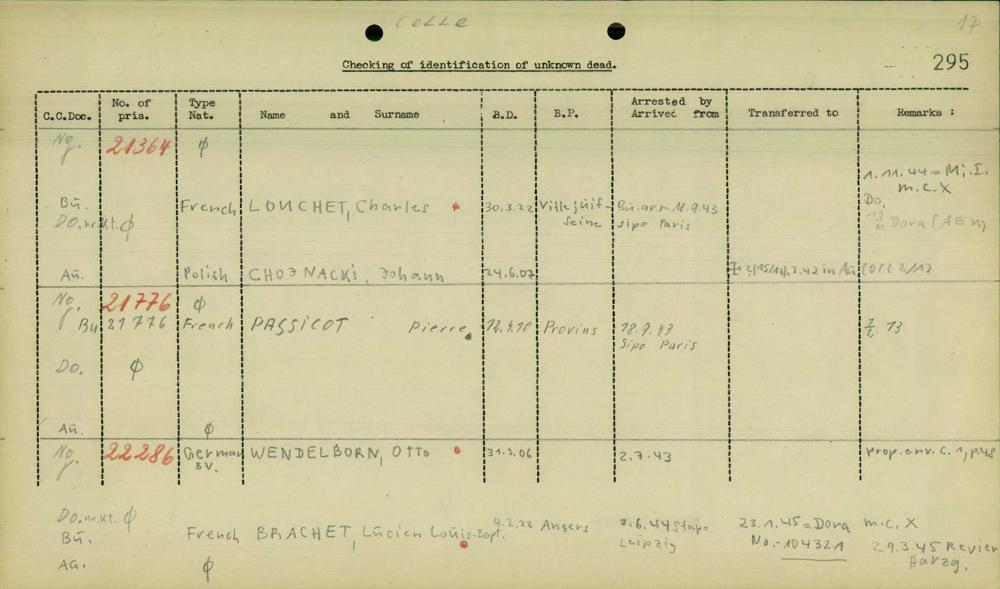 CELLE
17
Checking of identification of unknown dead.
295
C.C.Doc. No. of pris. Type Nat. Name and Surname B.D. B.P. Arrested by Arrived from Transferred to Remarks :
Ng. 21364 ϕ
1.11.44 = M.I.
m.c.X
Bu. French LOUCHET, Charles 30.3.22 Villejuif- Bu. arr. 18.9.43 Do.
Do.nr.kt. ϕ Seine Sipo Paris Dora
Au. Polish CHOJNACKI, Johann 24.6.07 in Au
No. 21776 ϕ
Bu 21776 French PASSICOT Pierre Provins 18.9.43 13
Sipo Paris
Do. ϕ
Au. ϕ
No. 22286 German WENDELBORN, Otto 31.3.06 2.7.43 prop.env.C.1, p.48
BV.
Do.nr.kt. ϕ
Bu. French BRACHET, Lucien Louis-Bapt. 4.2.22 Angers 3.6.44 Stapo 23.1.45 = Dora m.c.X
Leipzig No.-104321 29.3.45 Revier
Au. ϕ Harzg.